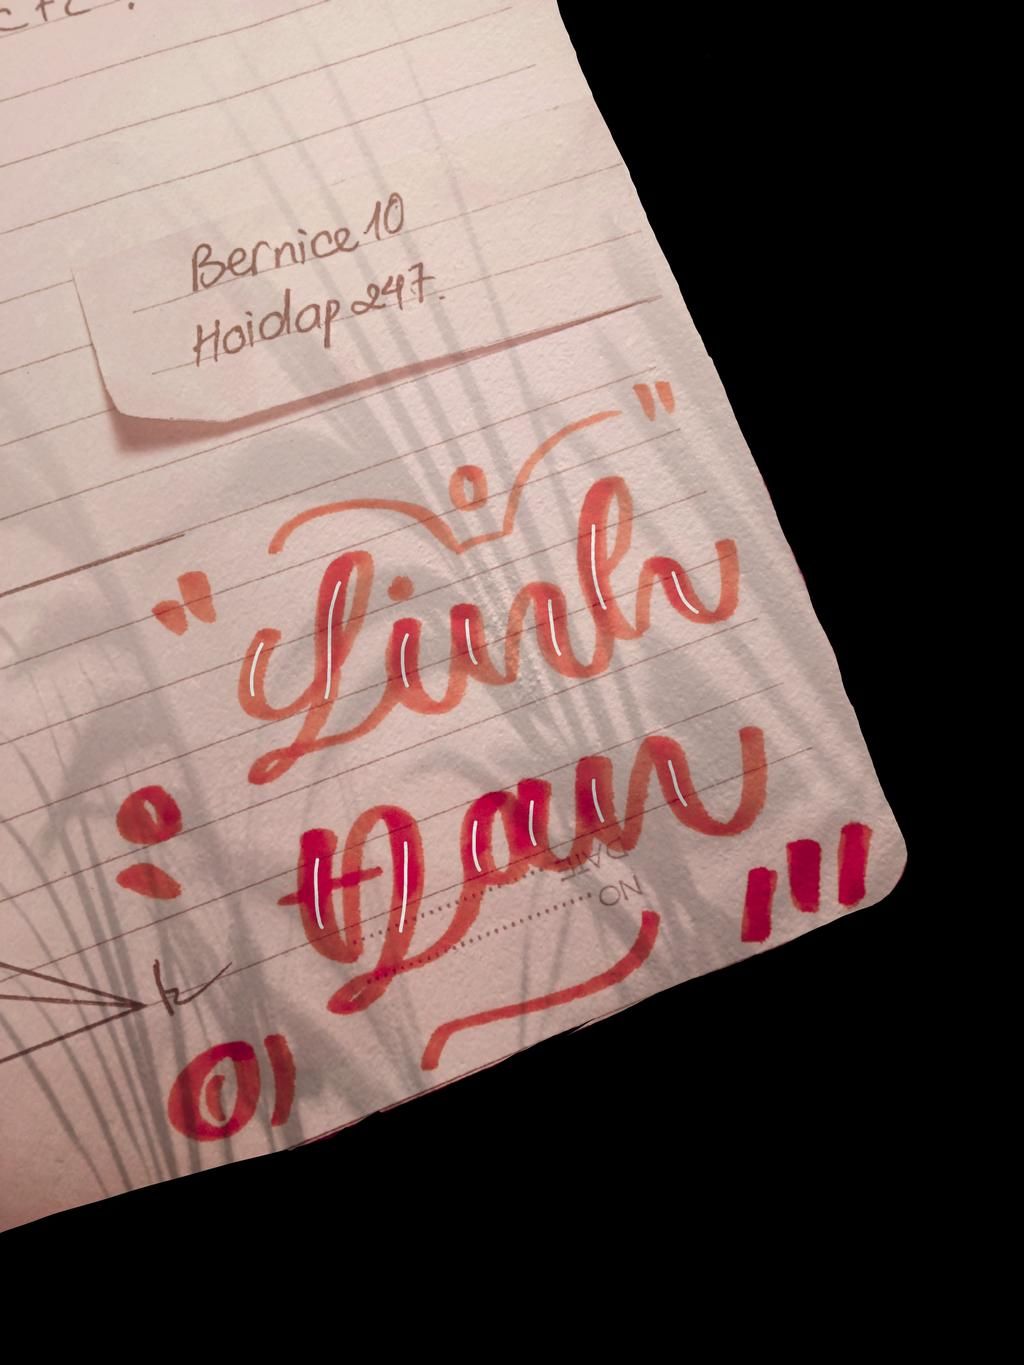 etc.
Bernice 10
Hoidap 247.
"Linh"
Đan
DATE
NO